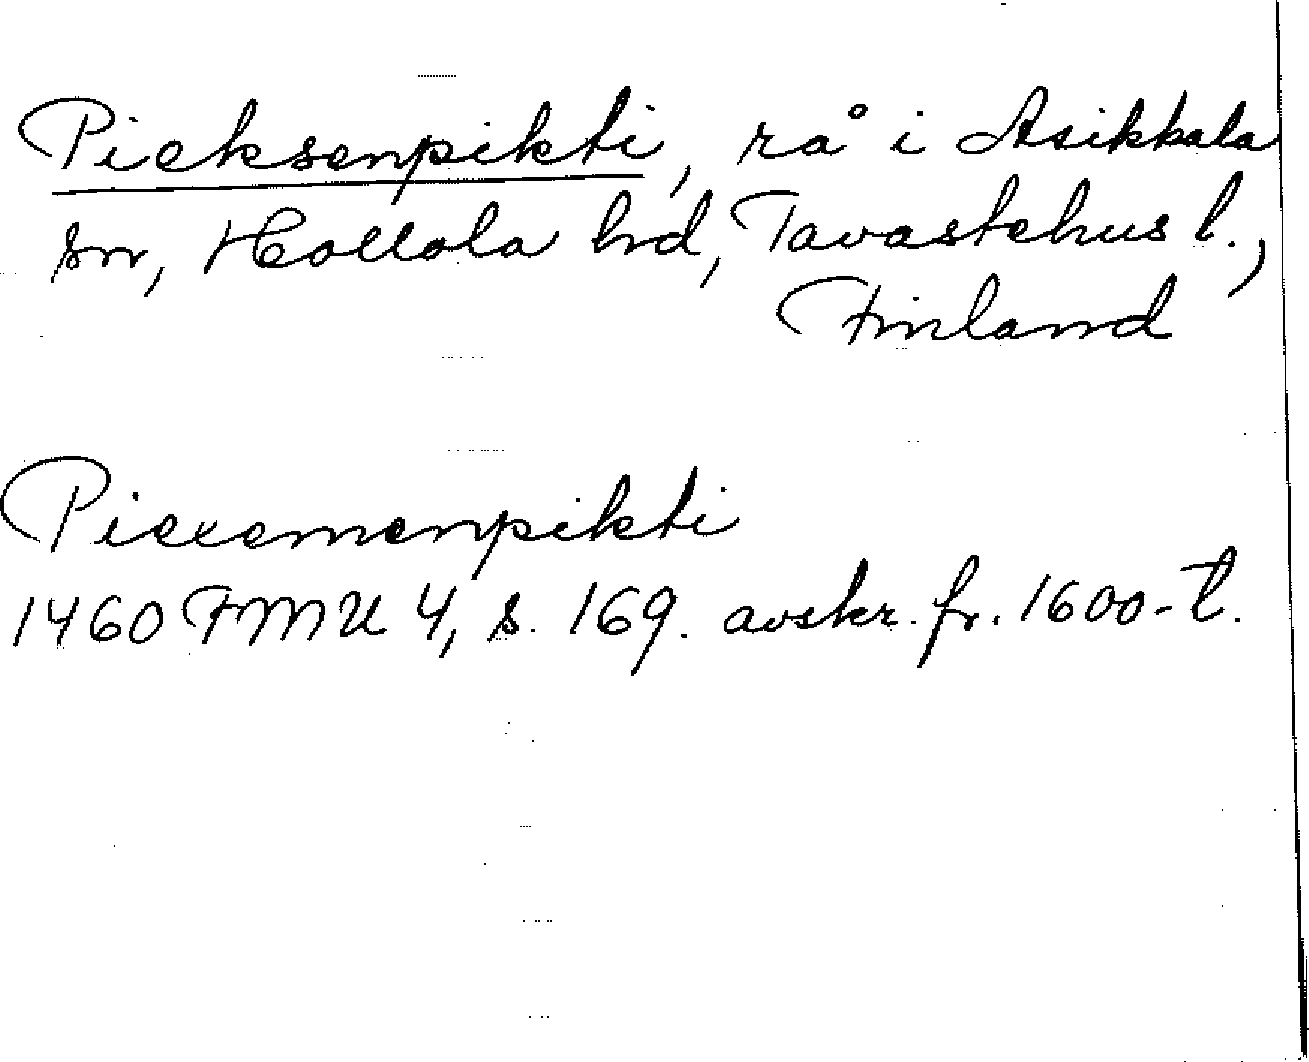 Pieksenpikti, rå i Asikkala
sn, Hollola hd, Tavastehus l.,
Finland
Piexemenpikti
1460 FMU 4, s. 169. avskr. fr. 1600-t.